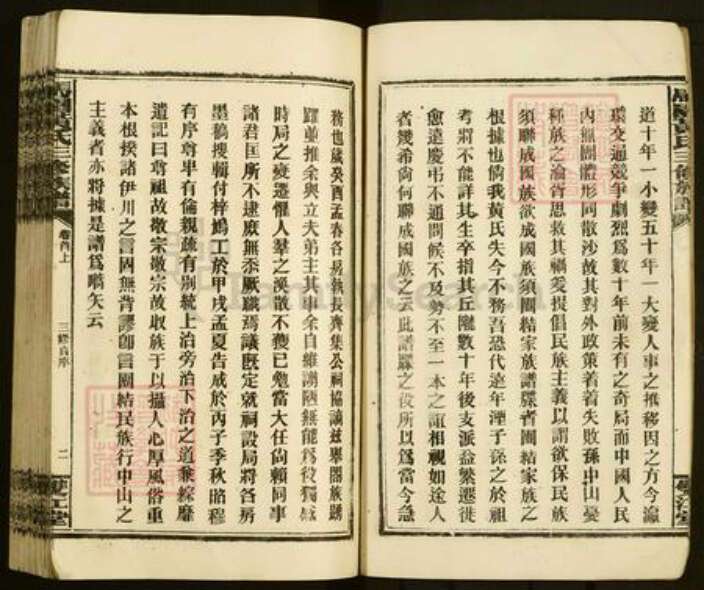 道十年一小變五十年一大變人事之推移因之方今瀛
環交通競爭劇烈為數十年前未有之奇局而中國人民
內無團體形同散沙故其對外政策着着失敗孫中山憂
種族之淪胥思救其禍爰提倡民族主義以謂欲保民族
須聯成國族欲成國族須團結家族譜牒者團結家族之
根據也倘我黃氏失今不務吾恐代遠年湮子孫之於祖
考將不能詳其生卒指其丘隴數十年後支派益繁遷徙
愈遠慶弔不通問候不及勢不至一本之誼相視如途人
者幾希尚何聯成國族之云此譜牒之役所以為當今急
務也歲癸酉孟春各房執長齊集公祠協議茲舉闔族踴
躍並推余與立夫弟主其事余自維譾陋無能為役獨感
時局之變遷懼人羣之渙散不獲已勉當大任尚賴同事
諸君匡所不逮庶無忝厥職焉議既定就祠設局將各房
墨稿搜輯付梓鳩工於甲戌孟夏告成於丙子季秋昭穆
有序尊卑有倫親疏有別統上治旁治下治之道乘綜靡
遺記曰尊祖故敬宗敬宗故收族于以攝人心厚風俗重
本根揆諸伊川之言固無背謬卽言團結民族行中山之
主義者亦將據是譜為嚆矢云
黃氏三修族譜
卷首上
三修自序
二